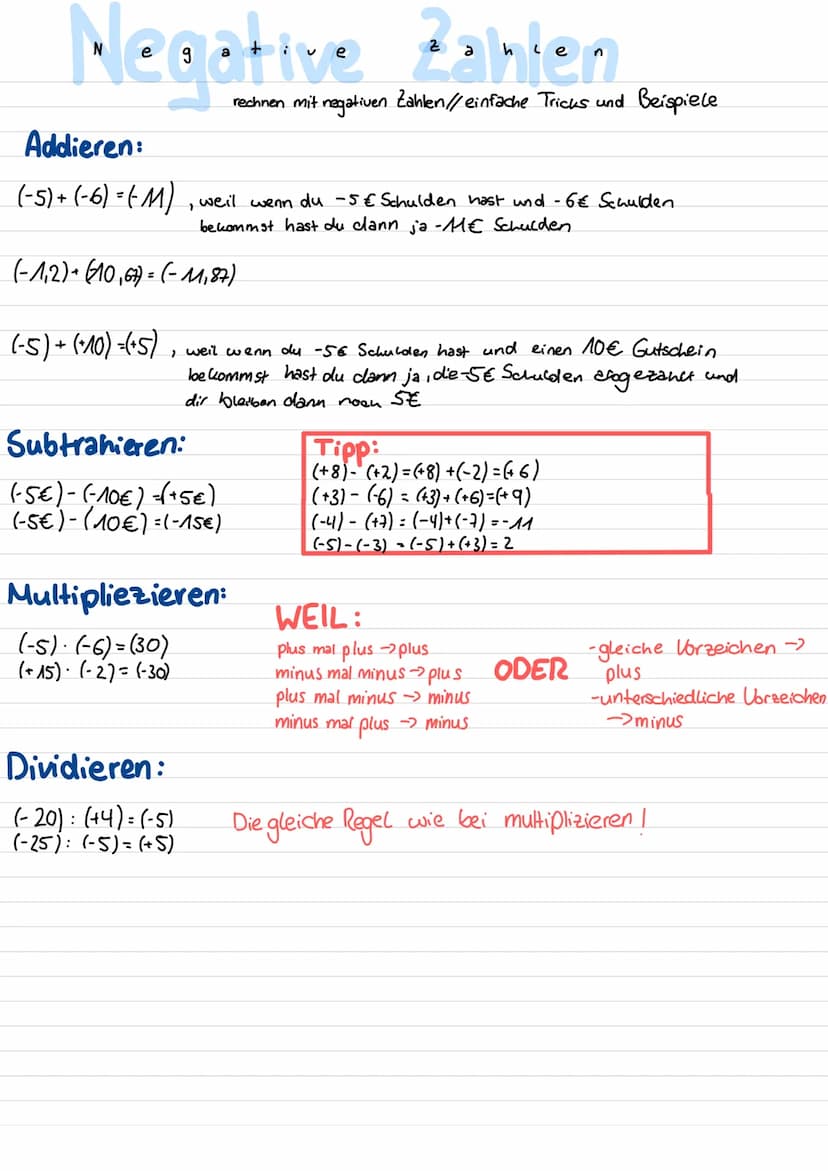 Negative Zahlen
rechnen mit negativen Zahlen // einfache Tricks und Beispiele
Addieren:
(-5) + (-6) = (-11) , weil wenn du -5€ Schulden hast und -6€ Schulden
bekommst hast du dann ja -11€ Schulden
(-1,2) + (-10,67) = (-11,87)
(-5) + (+10) = (+5) , weil wenn du -5€ Schulden hast und einen 10€ Gutschein
bekommst hast du dann ja, die -5€ Schulden abgezahlt und
dir bleiben dann noch 5€
Subtrahieren:
(-5€) - (-10€) = (+5€)
(-5€) - (10€) = (-15€)
Tipp:
(+8) - (+2) = (+8) + (-2) = (+6)
(+3) - (-6) = (+3) + (+6) = (+9)
(-4) - (+7) = (-4) + (-7) = -11
(-5) - (-3) = (-5) + (+3) = 2
Multipliezieren:
(-5) · (-6) = (30)
(+15) · (-2) = (-30)
WEIL:
plus mal plus → plus
minus mal minus → plus
plus mal minus → minus
minus mal plus → minus
ODER
- gleiche Vorzeichen →
plus
- unterschiedliche Vorzeichen
→ minus
Dividieren:
(-20) : (+4) = (-5)
(-25) : (-5) = (+5)
Die gleiche Regel wie bei multiplizieren!